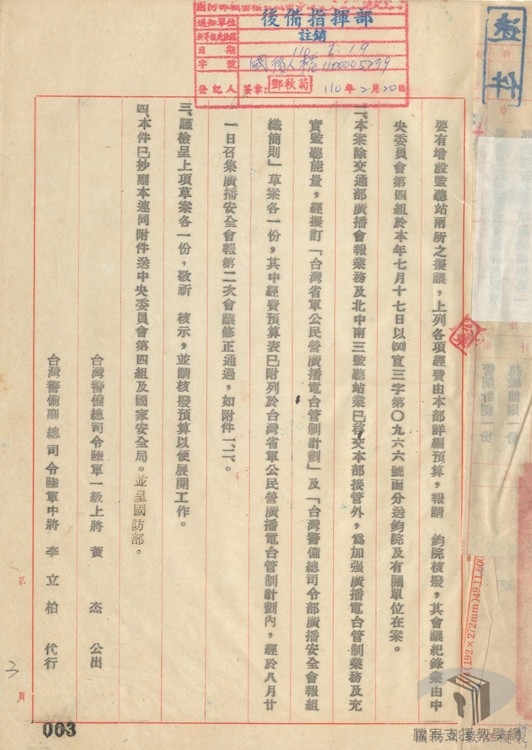 後備指揮部
註銷
通知單位
日期
110.2.19
字號
登記人
簽章：
鄧秋菊
110年2月20日
要有增設監聽站兩所之擬議，上列各項經費由本部詳編預算，報請　鈞院核撥，其會議紀錄業由中
央委員會第四組於本年七月十七日以㈣宣三字第〇九六六號函分送鈞院及有關單位在案。
二、本案除交通部廣播會報業務及北中南三監聽站業已移交本部接管外，為加强廣播電台管制業務及充
實監聽能量，經擬訂「台灣省軍公民營廣播電台管制計劃」及「台灣警備總司令部廣播安全會報組
織簡則」草案各一份，其中經費預算表已附列於台灣省軍公民營廣播電台管制計劃內，經於八月廿
一日召集廣播安全會報第二次會議修正通過，如附件一、二。
三、謹檢呈上項草案各一份，敬祈　核示，並請核撥預算以便展開工作。
四、本件已抄副本連同附件送中央委員會第四組及國家安全局。並呈國防部。
台灣警備總司令陸軍一級上將　黃　杰　公出
台灣警備副總司令陸軍中將　李　立　柏　代行
第
3
頁
003
(192×272mm)49.11.600